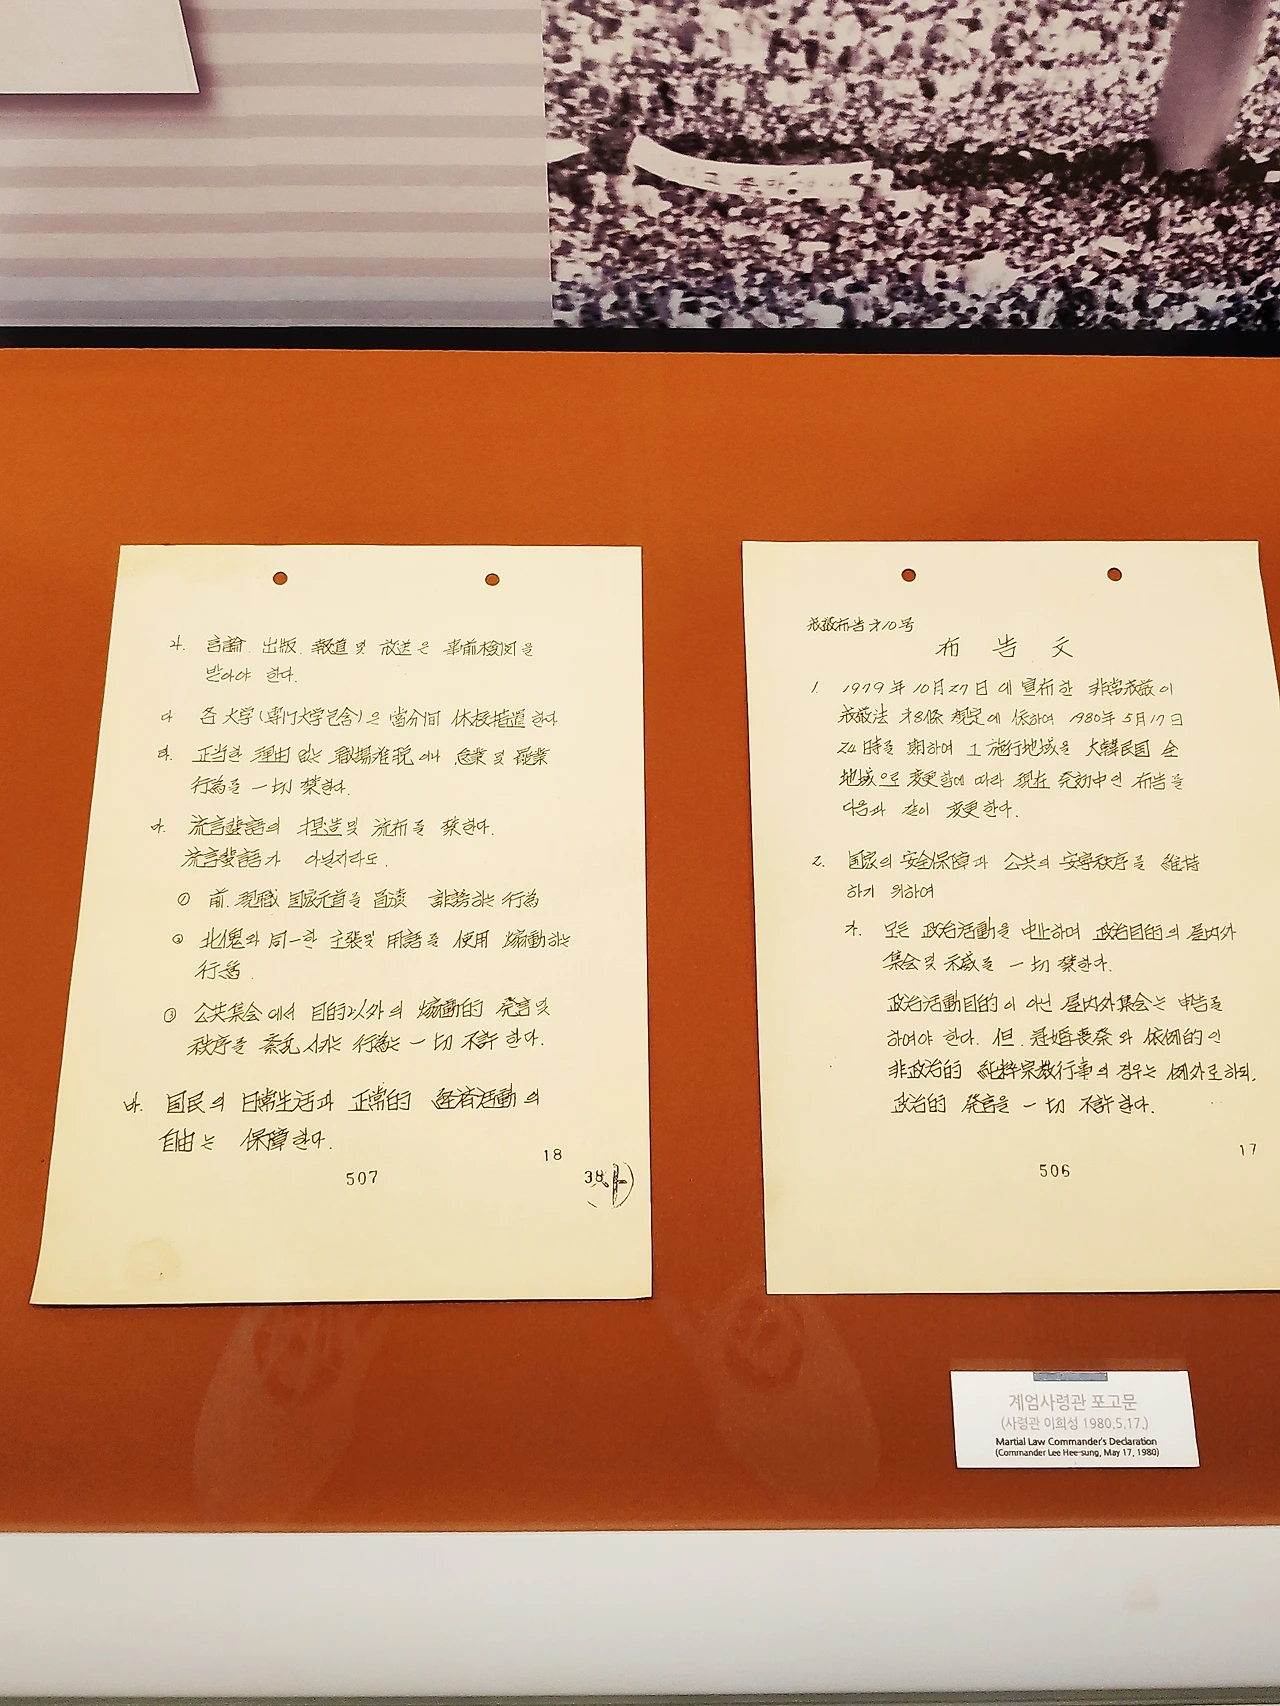 나. 言論. 出版. 報道 및 放送은 事前検閲을
받아야 한다.
다 各 大学(専门大学包含)은 當分间 休校措置 한다
라. 正当한 理由 없는 職場離脱이나 怠業 및 罷業
行為를 一切 禁한다.
마. 流言蜚語의 捏造 및 流布를 禁한다.
流言蜚語가 아닐지라도.
① 前. 現職 国家元首를 冒瀆 誹謗하는 行為
② 北傀와 同一한 主張 및 用語를 使用 煽動하는
行為.
③ 公共集会에서 目的以外의 煽動的 発言 및
秩序를 紊乱 시키는 行為는 一切 不許 한다.
바. 国民의 日常生活과 正常的 経済活動의
自由는 保障한다.
18
507
38
戒厳布告 才10号
布告文
1. 1979年 10月 27日에 宣布한 非常戒厳이
戒厳法 才8條 規定에 依하여 1980年 5月 17日
24時를 期하여 그 施行地域을 大韓民国 全
地域으로 変更함에 따라 現在 発効中인 布告를
다음과 같이 変更한다.
2. 国家의 安全保障과 公共의 安寧秩序를 維持
하기 위하여
가. 모든 政治活動을 中止하며 政治目的의 屋内外
集会 및 示威를 一切 禁한다.
政治活動目的이 아닌 屋内外集会는 申告를
하여야 한다. 但. 冠婚喪祭와 依例的인
非政治的 純粋宗教行事의 경우는 例外로 하되.
政治的 発言을 一切 不許한다.
17
506
계엄사령관 포고문
(사령관 이희성 1980.5.17.)
Martial Law Commander's Declaration
(Commander Lee Hee-sung, May 17, 1980)